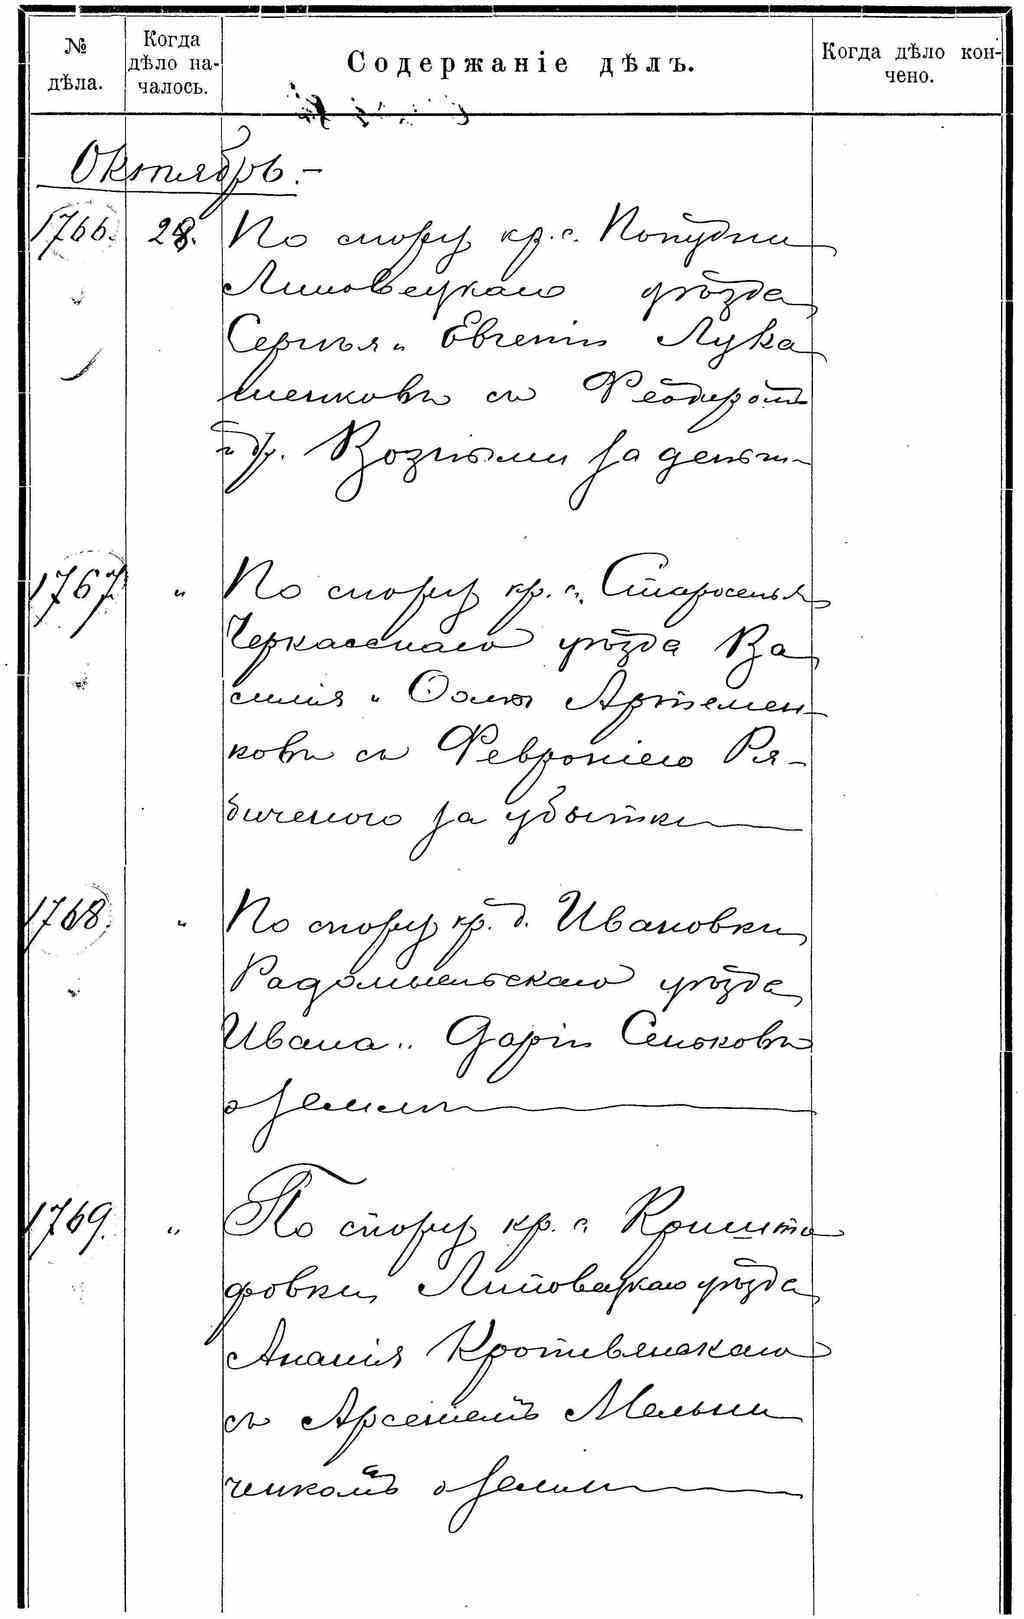 № дѣла.
Когда дѣло началось.
Содержаніе дѣлъ.
Когда дѣло кончено.
Октябрь.-
1766. 28. По спору кр. с. Попудни
Липовецкаго уѣзда
Сергѣя и Евгеніи Лука
шенковъ съ Феодоромъ
и др. Возными за деньги
1767 " По спору кр. с. Староселья
Черкасскаго уѣзда Ва
силія и Ольги Артемен-
ковъ съ Февроніею Ря-
биченого за убытки
1768. " По спору кр. д. Ивановки
Радомысльскаго уѣзда
Ивана и Даріи Сеньковъ
о землѣ
1769. " По спору кр. с. Кришто
фовки, Липовецкаго уѣзда
Ананія Кропивянскаго
съ Арсеніемъ Мельни
ченкомъ о землѣ